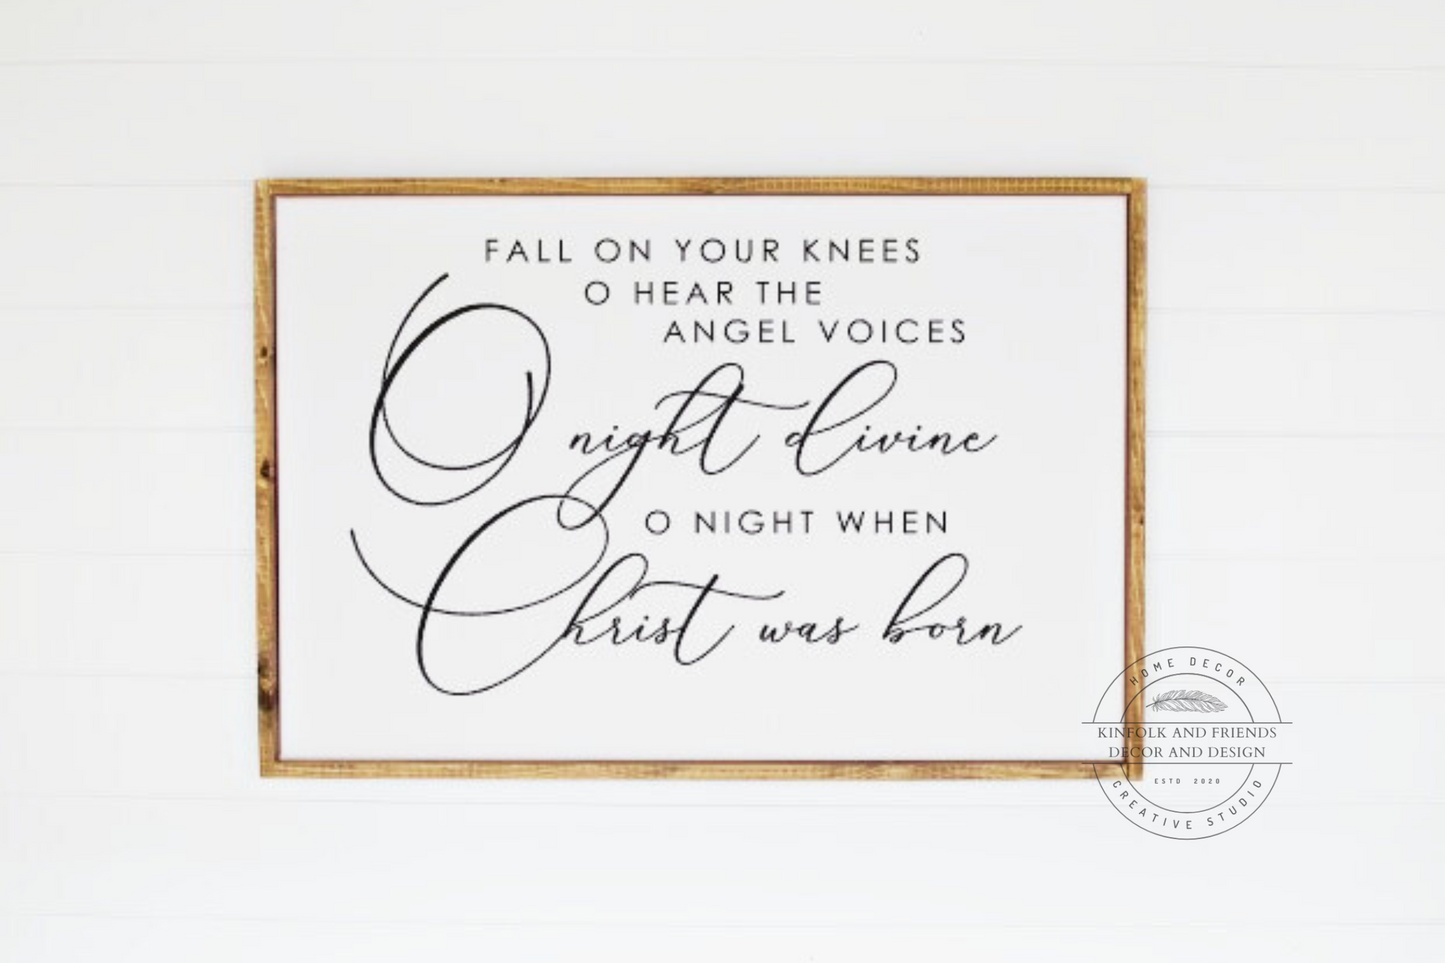 FALL ON YOUR KNEES
O HEAR THE
ANGEL VOICES
O night divine
O NIGHT WHEN
Christ was born
HOME DECOR
KINFOLK AND FRIENDS
DECOR AND DESIGN
ESTD 2020
CREATIVE STUDIO